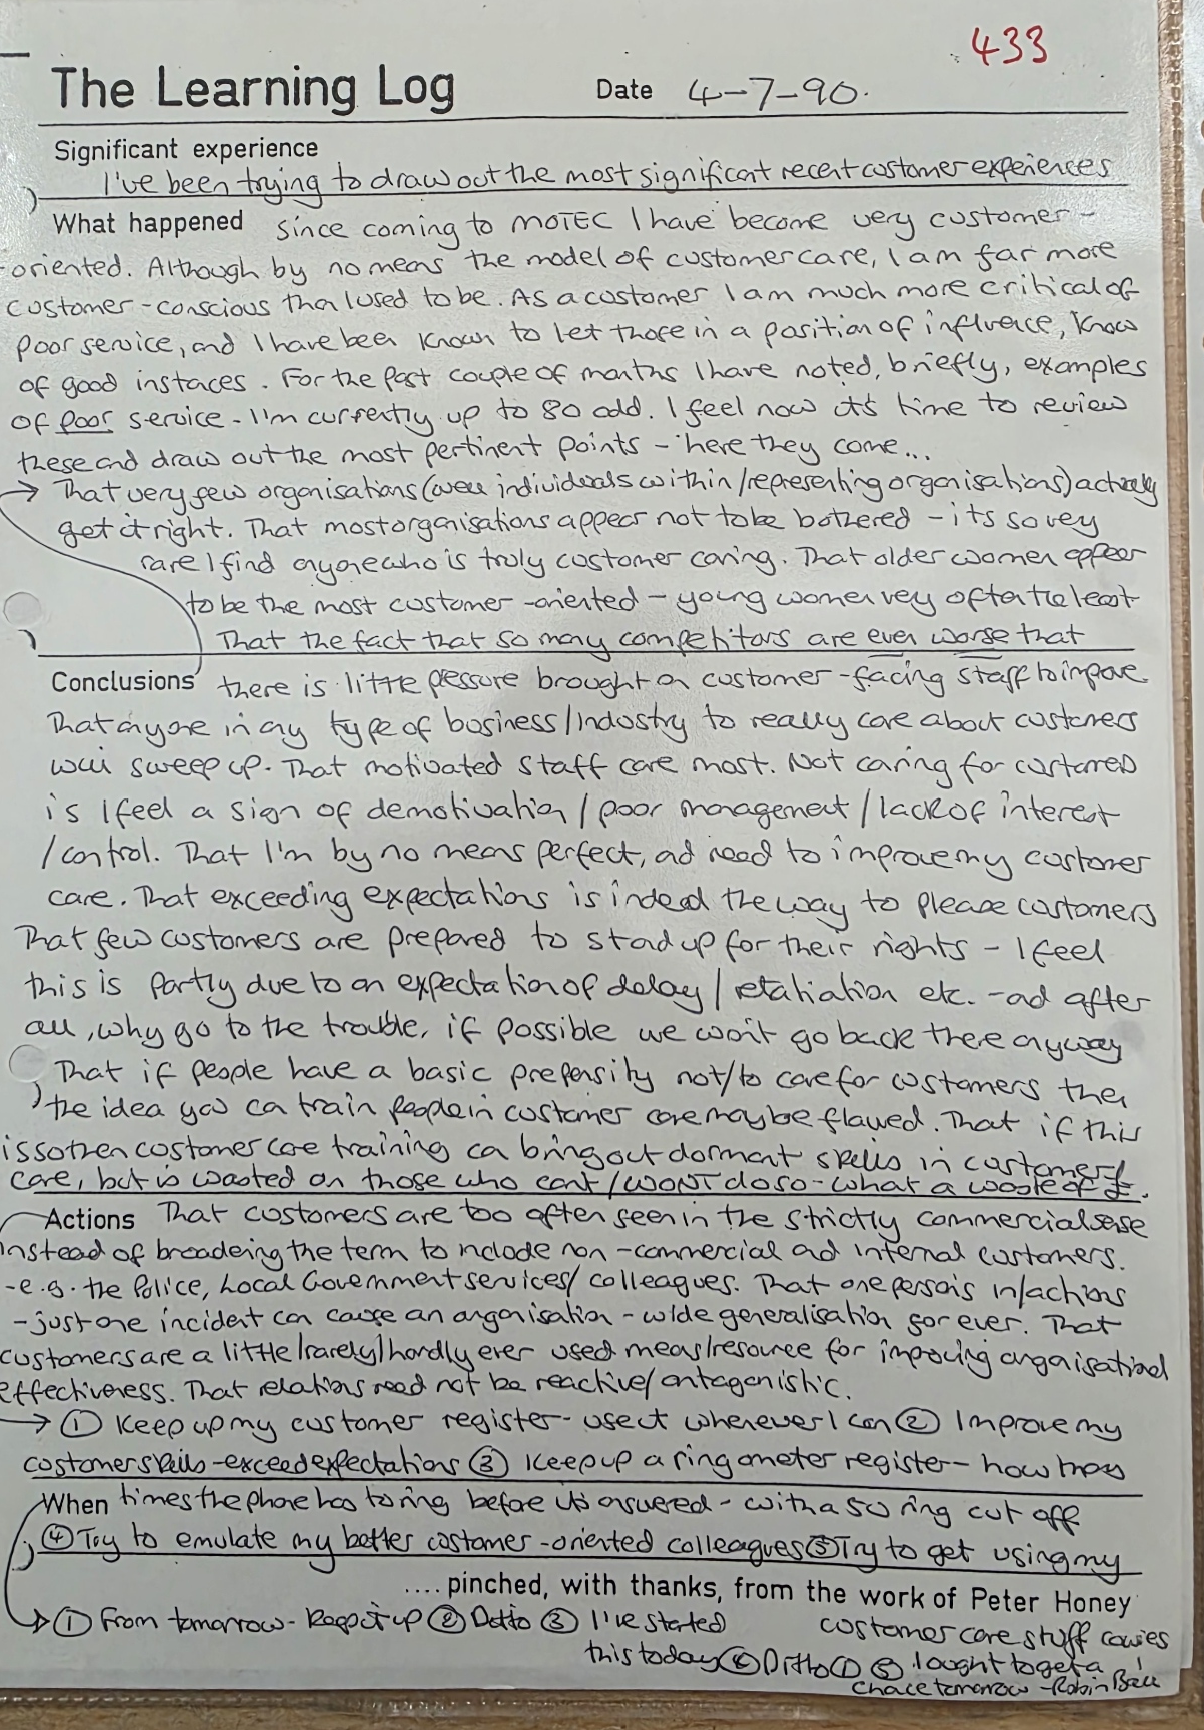 433
The Learning Log Date 4-7-90.
Significant experience
I've been trying to draw out the most significant recent customer experiences
What happened since coming to MOTEC I have become very customer-
oriented. Although by no means the model of customer care, I am far more
customer-conscious than I used to be. As a customer I am much more critical of
poor service, and I have been known to let those in a position of influence, know
of good instaces. For the past couple of months I have noted, briefly, examples
of poor service - I'm currently up to 80 odd. I feel now it's time to review
these and draw out the most pertinent points - here they come...
→ That very few organisations (well individuals within/representing organisations) actually
get it right. That most organisations appear not to be bothered - its so very
rare I find anyone who is truly customer caring. That older women appear
to be the most customer-oriented - young women very often the least
That the fact that so many competitors are even worse that
Conclusions there is little pressure brought on customer-facing staff to improve.
That anyone in any type of business/industry to really care about customers
will sweep up. That motivated staff care most. Not caring for customers
is I feel a sign of demotivation/poor management/lack of interest
/control. That I'm by no means perfect, ad need to improve my customer
care. That exceeding expectations is indeed the way to please customers
That few customers are prepared to stand up for their rights - I feel
this is partly due to an expectation of delay/retaliation etc. - ad after
all, why go to the trouble, if possible we won't go back there anyway
That if people have a basic prepensity not/to care for customers then
the idea you can train people in customer care may be flawed. That if this
is so then customer care training can bring out dormant skills in customer
care, but is wasted on those who cant/WONT do so - what a waste of £.
Actions That customers are too often seen in the strictly commercial sense
instead of broadening the term to include non-commercial ad internal customers.
-e.g. the Police, Local Government services/colleagues. That one person's in/actions
- just one incident can cause an organisation-wide generalisation for ever. That
customers are a little/rarely/hardly ever used means/resource for improving organisational
effectiveness. That relations need not be reactive/antagonistic.
→ ① Keep up my customer register - use it whenever I can ② Improve my
customer skills - exceed expectations ③ Keep up a ringometer register - how many
When times the phone has to ring before it's answered - with a 50 ring cut off
④ Try to emulate my better customer-oriented colleagues ⑤ Try to get using my
.... pinched, with thanks, from the work of Peter Honey
customer care stuff
① From tomorrow - Keep it up ② Ditto ③ I've started
this today ④ Ditto ① ⑤ I ought to get a
chance tomorrow - Robin Ball